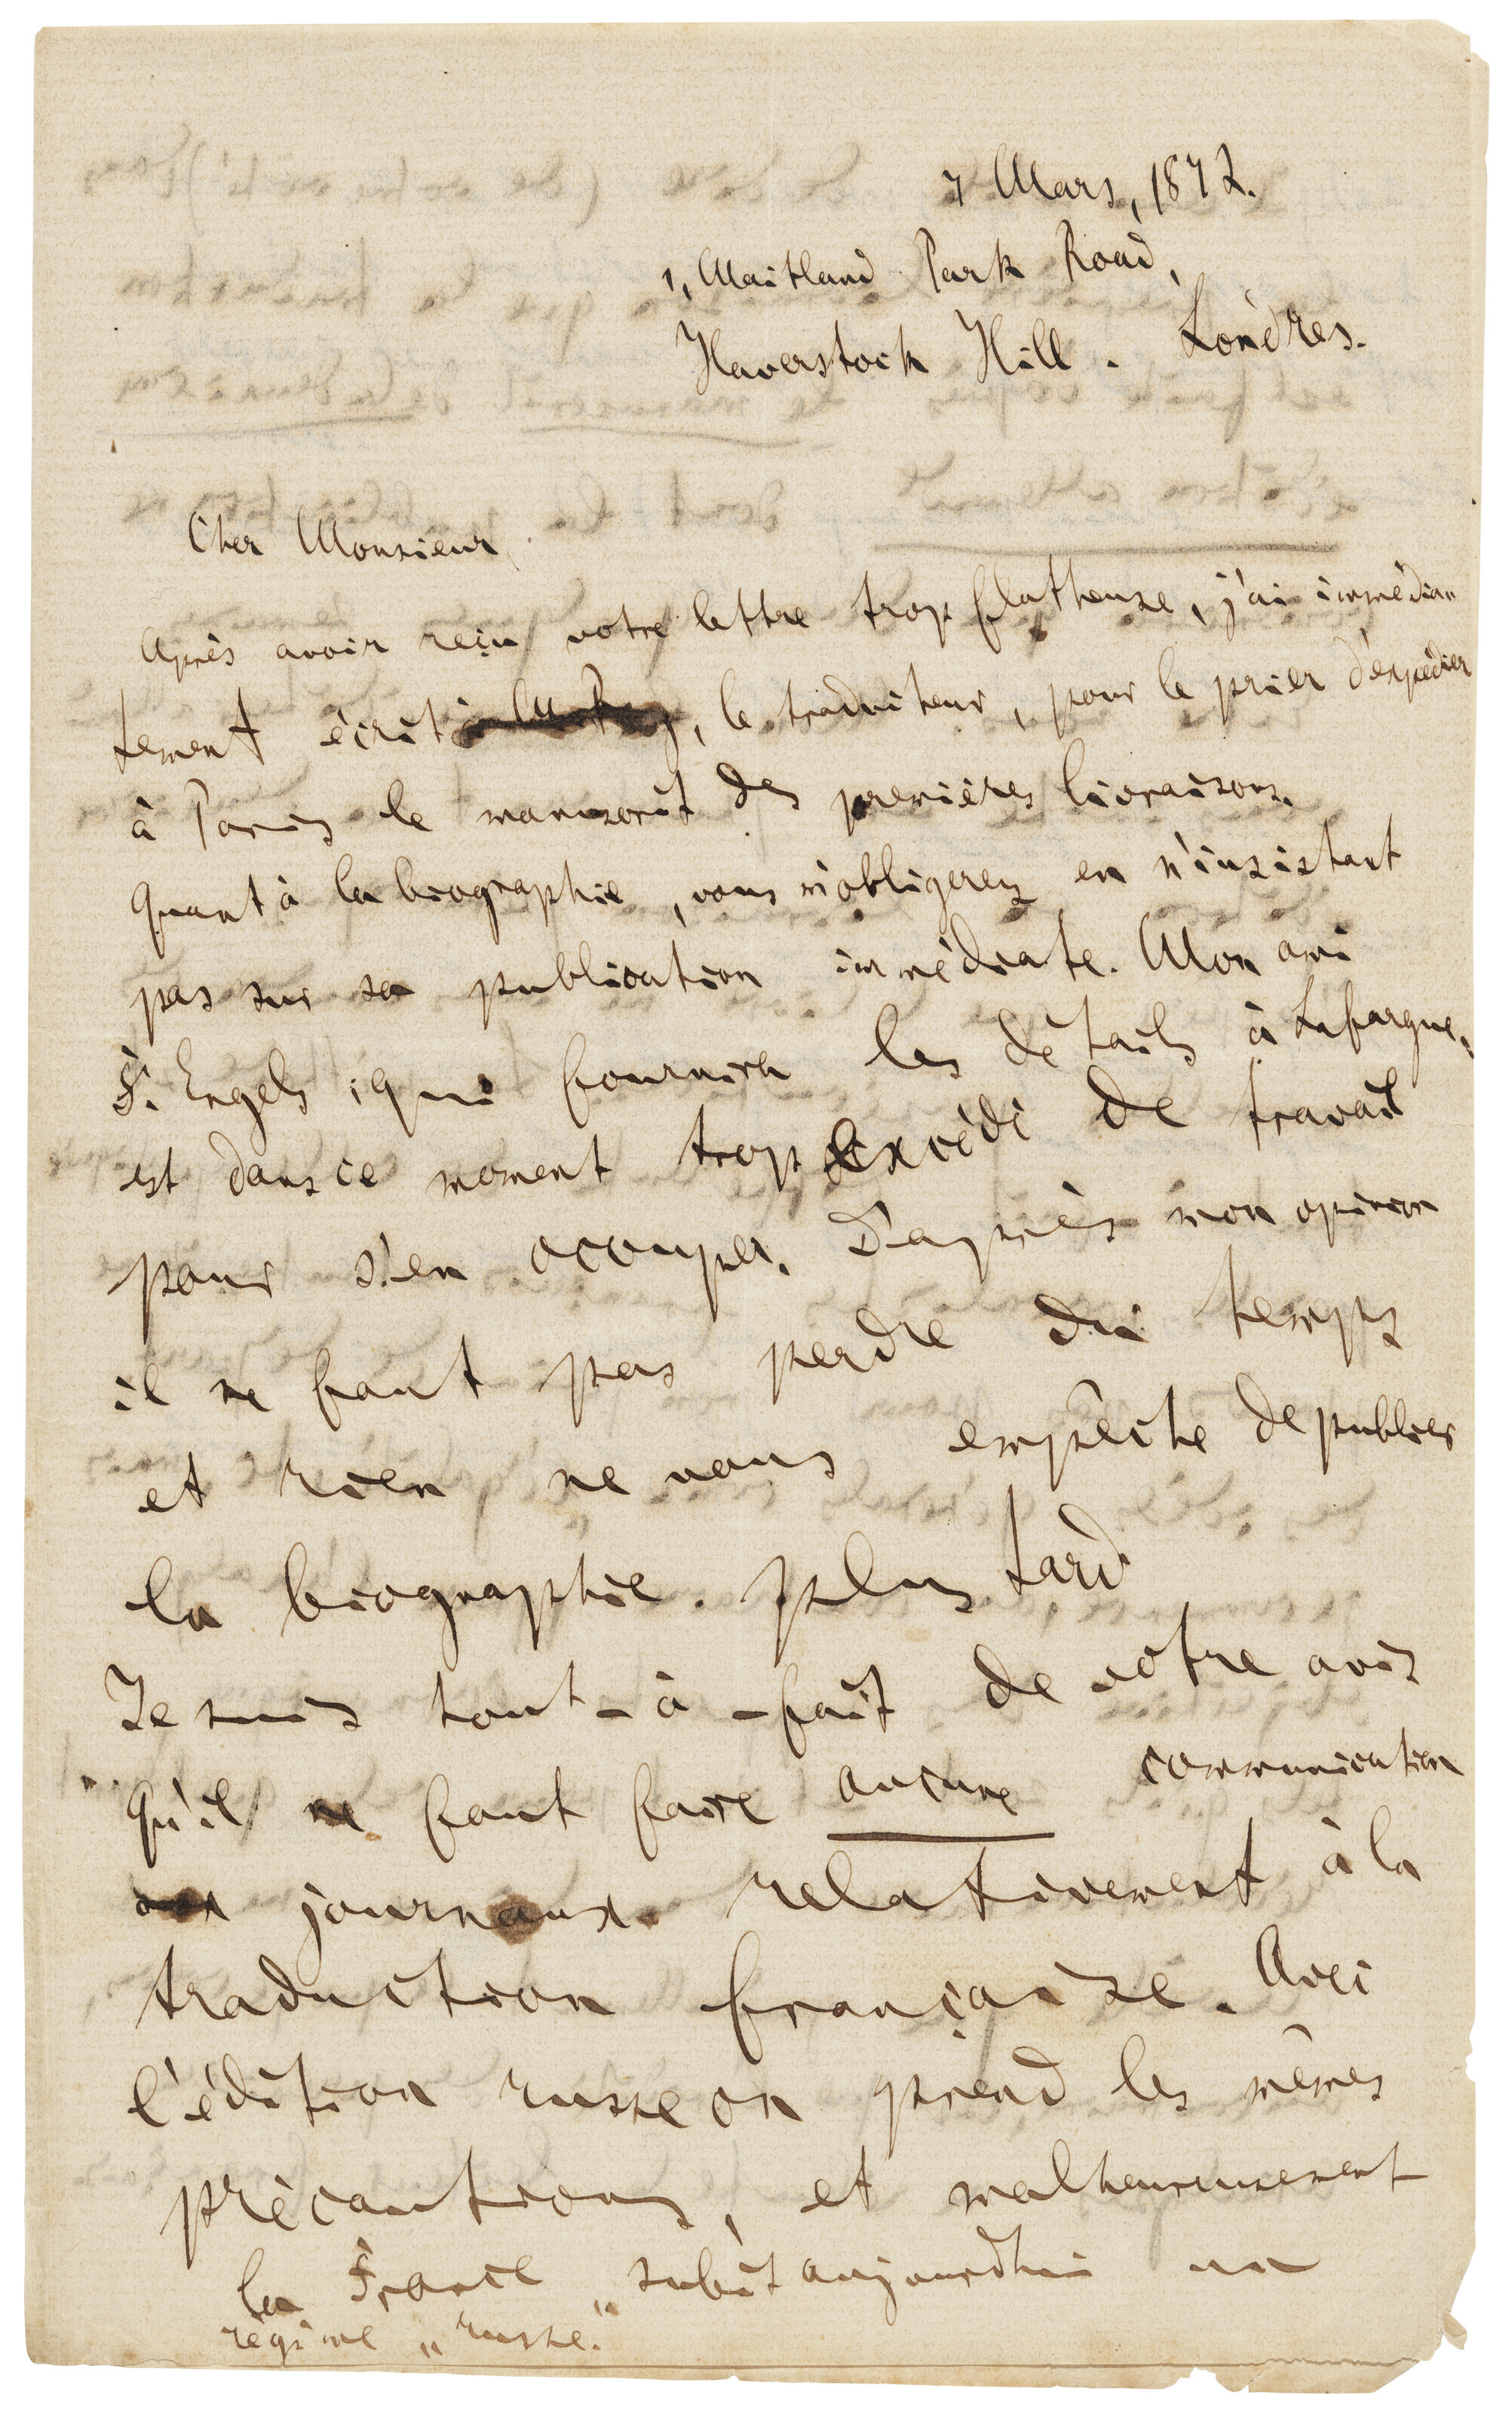 7 Mars, 1872.
1, Maitland Park Road,
Haverstock Hill. Londres.
Cher Monsieur
Après avoir reçu votre lettre trop flatteuse, j'ai immédia
tement écrit à, le traducteur, pour le prier d'expédier
à Paris le manuscrit des premières livraisons.
Quant à la biographie, vous m'obligerez en n'insistant
pas sur sa publication immédiate. Mon ami
F. Engels, qui fournira les détails à Lafargue,
est dans ce moment trop excédé de travail
pour s'en occuper. D'après mon opinion
il ne faut pas perdre du temps
et rien ne vous empêche de publier
la biographie plus tard
Je suis tout-à-fait de votre avis
Qu'il ne faut faire aucune communication
aux journaux relativement à la
traduction française. Avec
l'édition russe on prend les mêmes
précautions, et malheureusement
la France subit aujourdhui un
régime „russe."